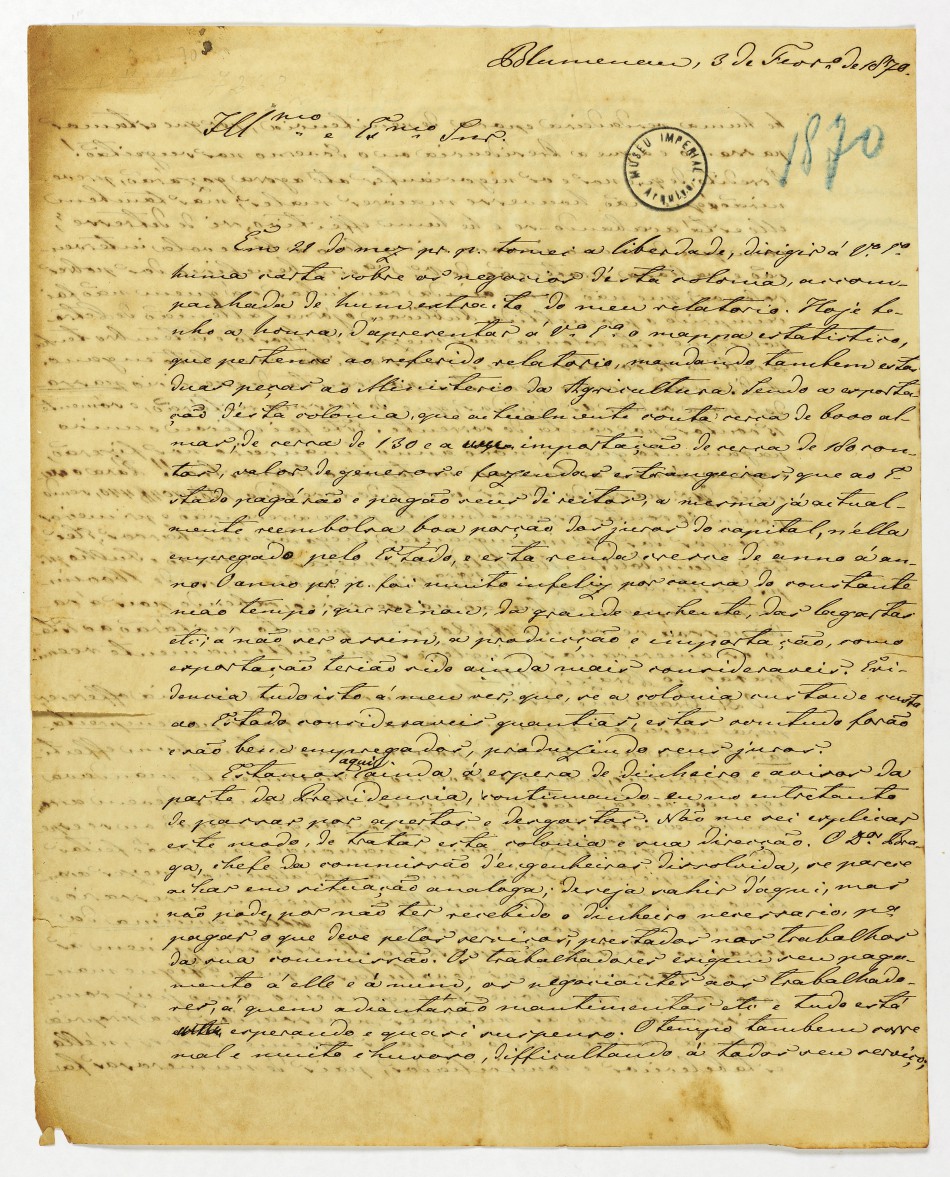 Blumenau, 3 de Fevr.º de 1870.
Ill.mo e Ex.mo Snr.
1870
MUSEU IMPERIAL
Arquivo
Em 21 do mez pr. p. tomei a liberdade, dirigir á V.ª S.ª
huma carta sobre os negocios d'ésta colonia, accom-
panhada de hum extracto do meu relatorio. Hoje te-
nho a honra, d'apresentar á V.ª S.ª o mappa estatistico,
que pertence ao referido relatorio, mandando tambem estas
duas peças ao Ministerio da Agricultura. Sendo a exporta
ção d'ésta colonia, que actualmente conta cerca de 6000 al-
mas, de cerca de 130 e a importação de cerca de 180 con-
tos, valor de generos e fazendas estrangeiras, que ao E-
stado pagárão e pagão seus direitos, a mesma já actual-
mente reembolsa boa porção dos juros do capital, n'élla
empregado pelo Estado, e esta renda cresce de anno á an-
no. O anno pr. p. foi muito infeliz por causa do constante
máo tempo, que reinou, da grande enchente, das lagartas
etc; a não ser assim, a producção e importação, como
exportação terião sido ainda mais consideraveis. Evi-
dencia tudo isto á meu ver, que, se a colonia custou e custa
ao Estado consideraveis quantias, estas comtudo forão
e são bem empregadas, produzindo seus juros.
Estamos aqui ainda á espera de dinheiro e avisos da
parte da Presidencia, continuando eu no entretanto
de passar por apertos e desgostos. Não me sei explicar
este modo, de tratar esta colonia e sua direcção. O D.or Bra-
ga, chefe da commissão d'engenheiros dissolvida, se parece
achar em situação analoga; deseja sahir d'aqui, mas
não pode, por não ter recebido o dinheiro necessario, p.ª
pagar o que deve pelos serviços, prestados nos trabalhos
da sua commissão. Os trabalhadores exigem seu paga-
mento á elle e á mim, os negociantes aos trabalhado-
res, á quem adiantárão mantimentos etc e tudo está
esperando e quasi suspenso. O tempo tambem corre
mal e muito chuvoso, difficultando á todos seu serviço;